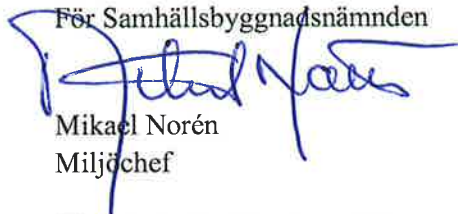 För Samhällsbyggnadsnämnden
Mikael Norén
Miljöchef